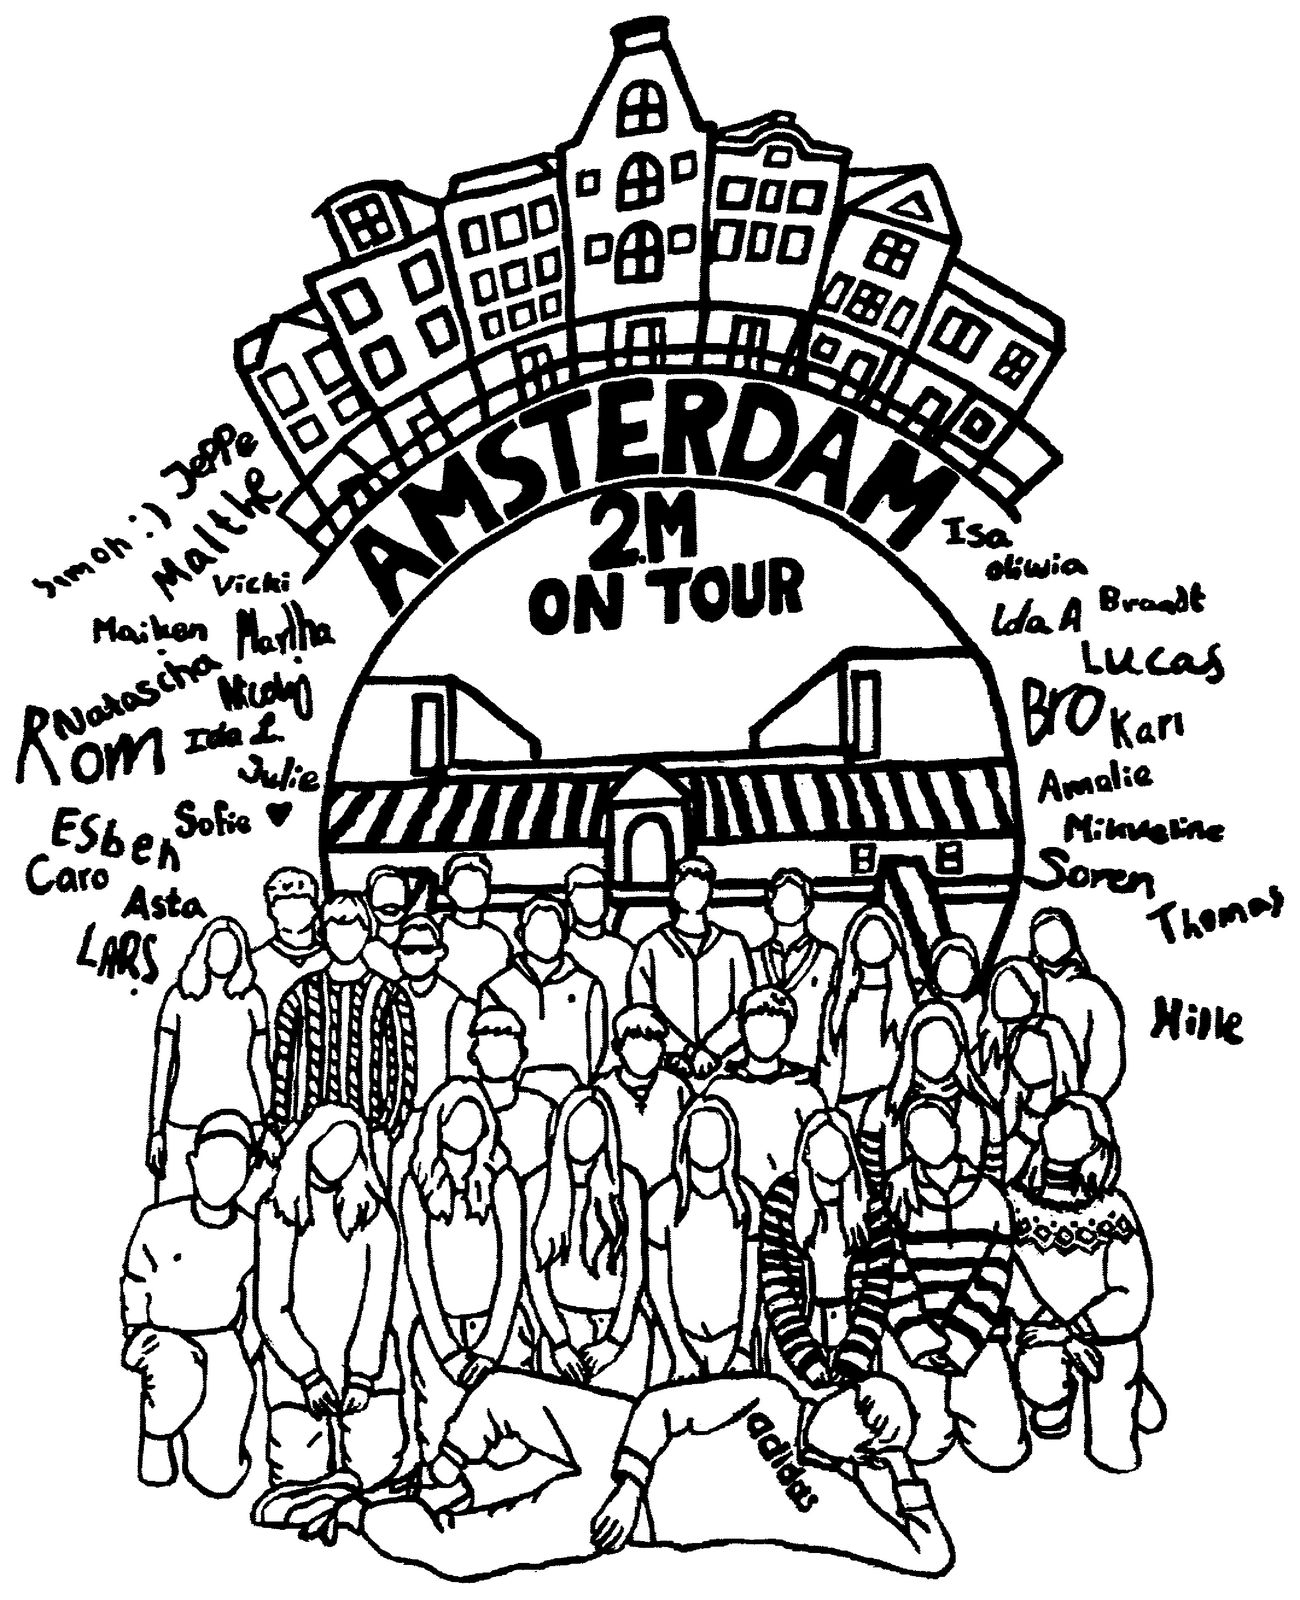 AMSTERDAM
2.M
ON TOUR
Jeppe
Simon :)
Malthe
Vicki
Maiken
Martha
Natascha
Nicolaj
Rom
Ida L.
Julie
Esben
Sofie ♥
Caro
Asta
LARS
Isa
Oliwia
Ida A
Brandt
Lucas
Bro
Karl
Amalie
Søren
Thomas
Mille
adidas